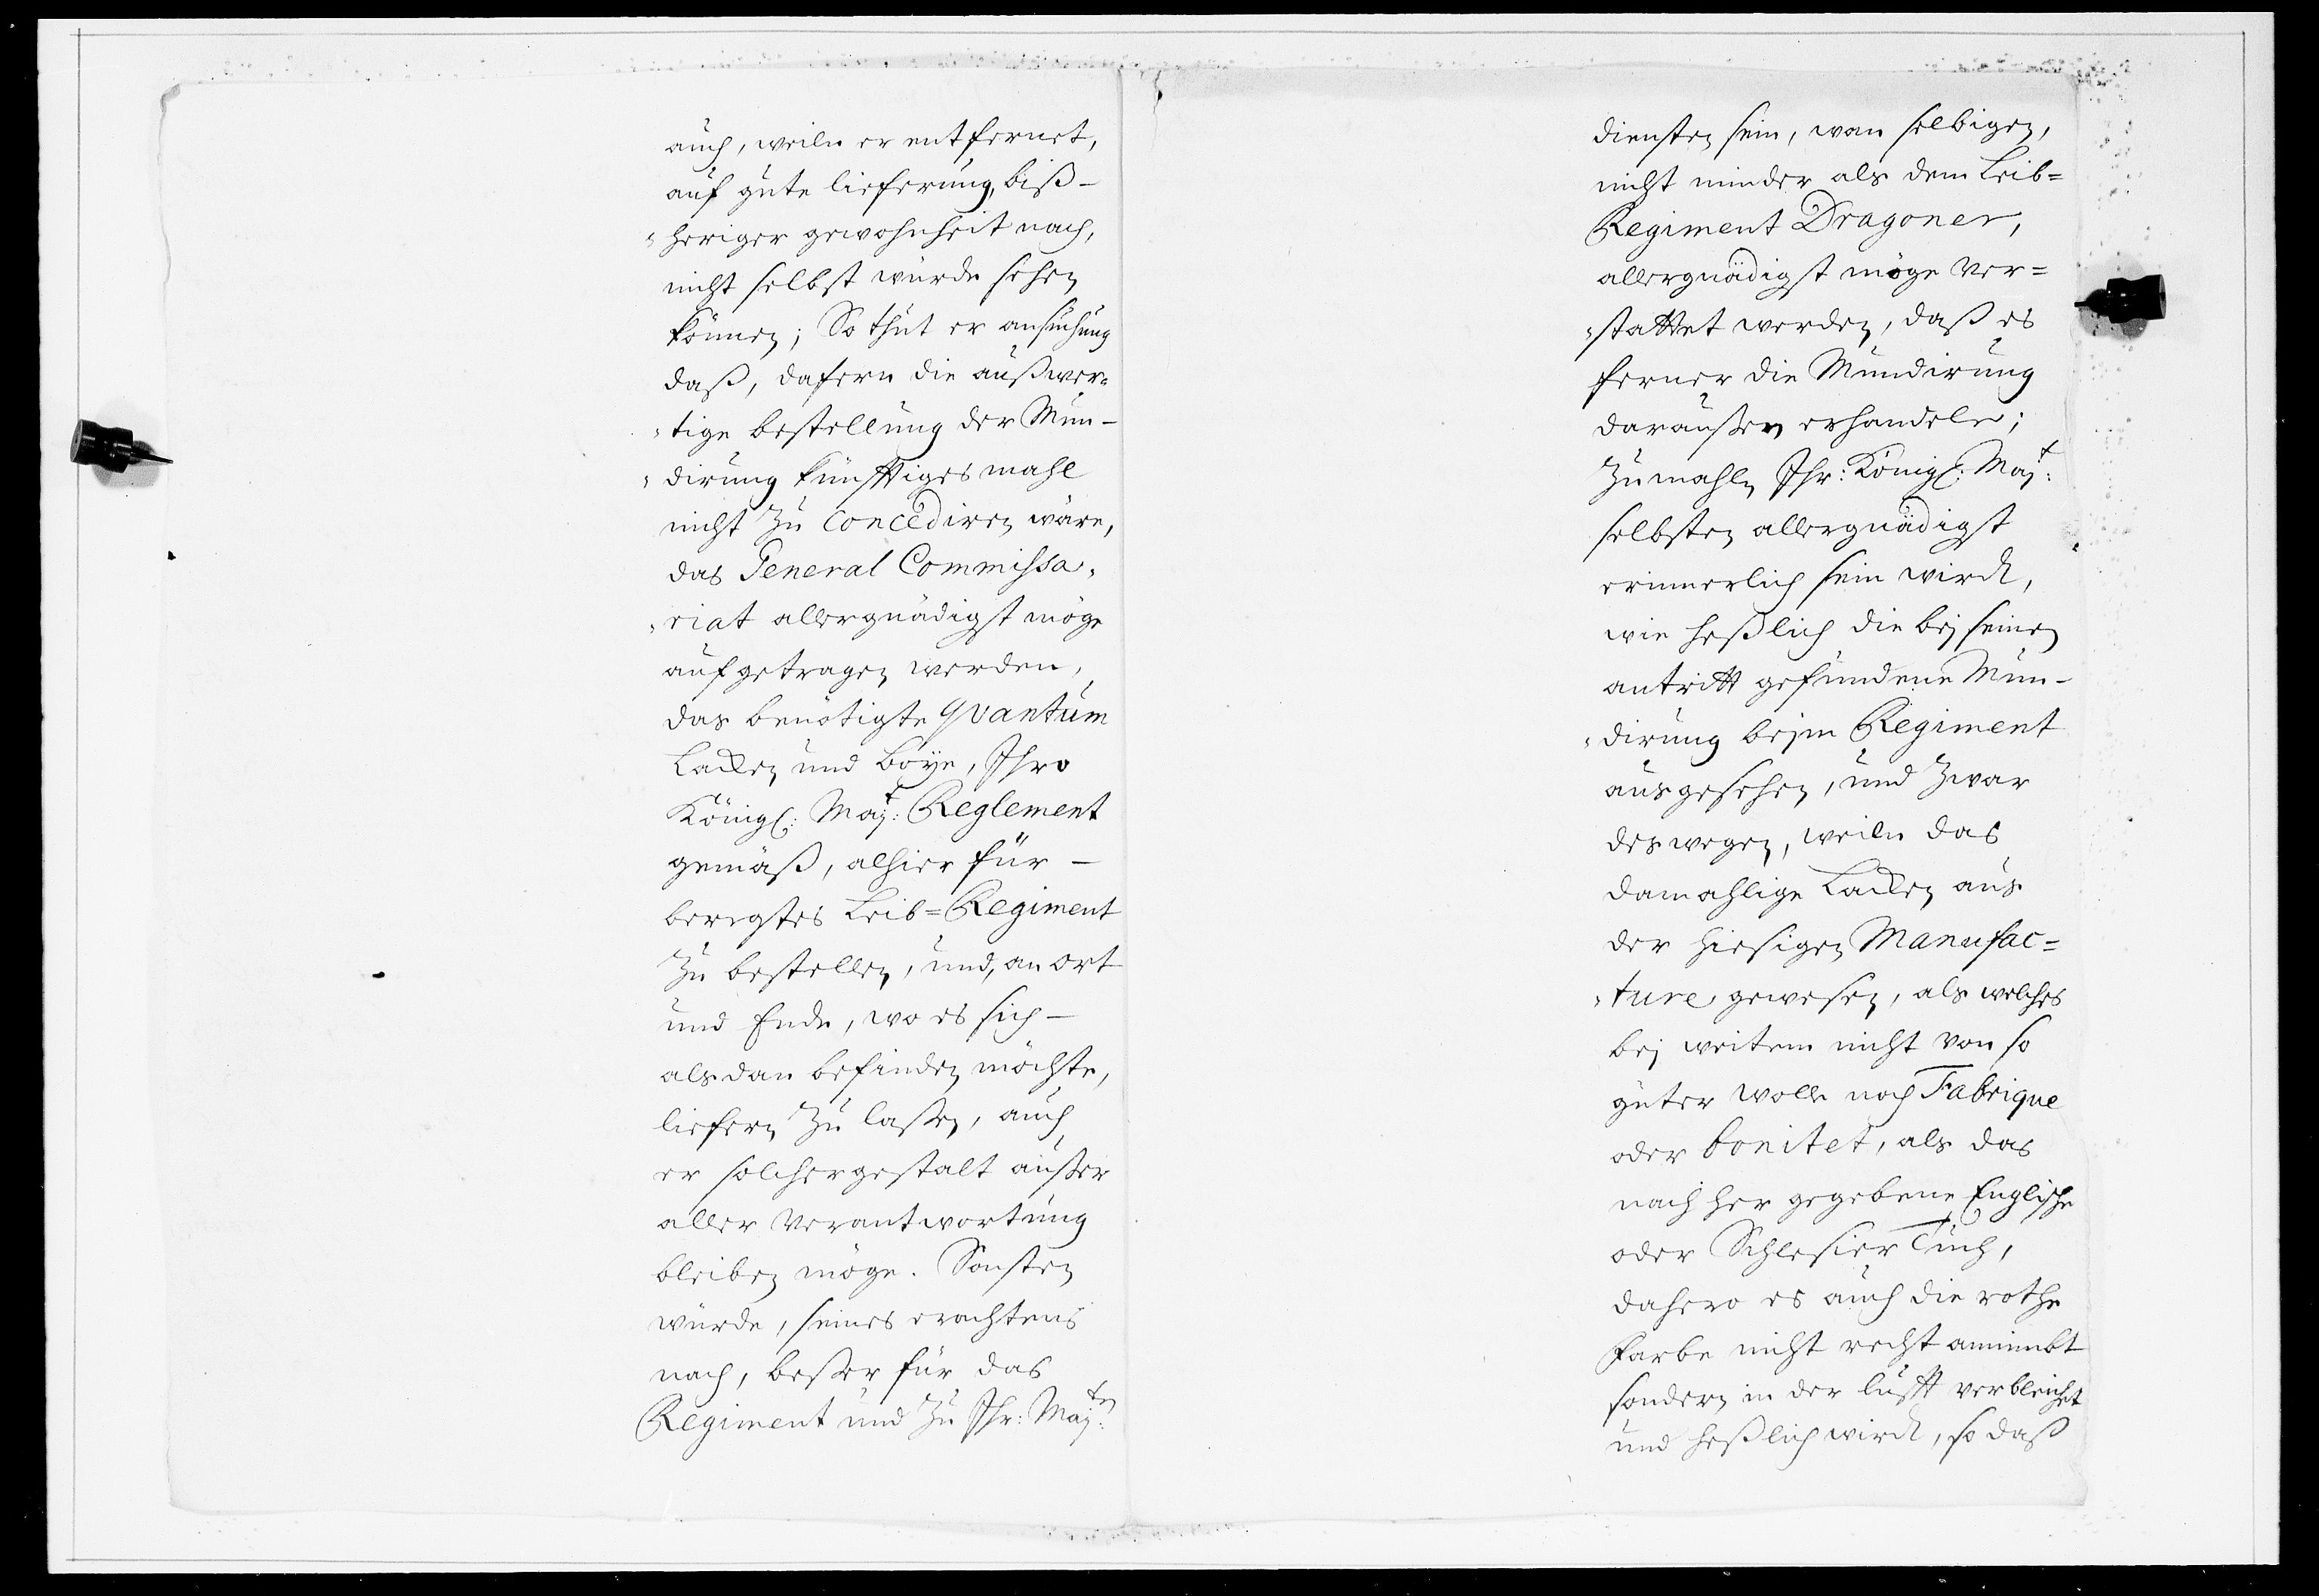 auch, weiln er entfernet,
auf gute lieferung, biß-
"heriger gewohnheit nach,
nicht selbst würde sehen
können; So thut er ansuchung
daß, dafern die außwer-
"tige bestellung der Mun-
"dirung künfftiges mahl
nicht zu concediren wäre,
das General Commissa-
"riat allergnädigst möge
aufgetragen werden,
das benötigte qvantum
Lacken und Boye, Ihro
Königl: Majt: Reglement
gemäß, alhier für-
beregtes Leib=Regiment
zu bestellen, und, an ort
und Ende, wo es sich-
alsdan befinden möchte,
liefern zu laßen, auch
er solchergestalt außer
aller verantwortung
bleiben möge. Sonsten
würde, seines erachtens
nach, beßer für das
Regiment und zu Ihr: Majtn:
diensten sein, wan selbigen,
nicht minder als dem Leib=
Regiment Dragoner,
allergnädigst möge ver=
"stattet werden, daß es
ferner die Mundirung
daraußen erhandele;
Zumahln Ihr: Königl: Majt:
selbsten allergnädigst
erinnerlich sein wird,
wie heßlich die bej seinen
antritt gefundene Mun-
"dirung bejm Regiment
ausgesehen, und zwar
deswegen, weiln das
damahlige Lacken aus
der hiesigen Manufac=
"ture gewesen, als welches
bej weitem nicht von so
guter wolle noch Fabrique
oder bonitet, als das
nach her gegebene Englische
oder Schlesier Tuch,
dahero es auch die rothe
farbe nicht recht annimbt
sondern in der lufft verbleichet
und heßlich wird, so daß